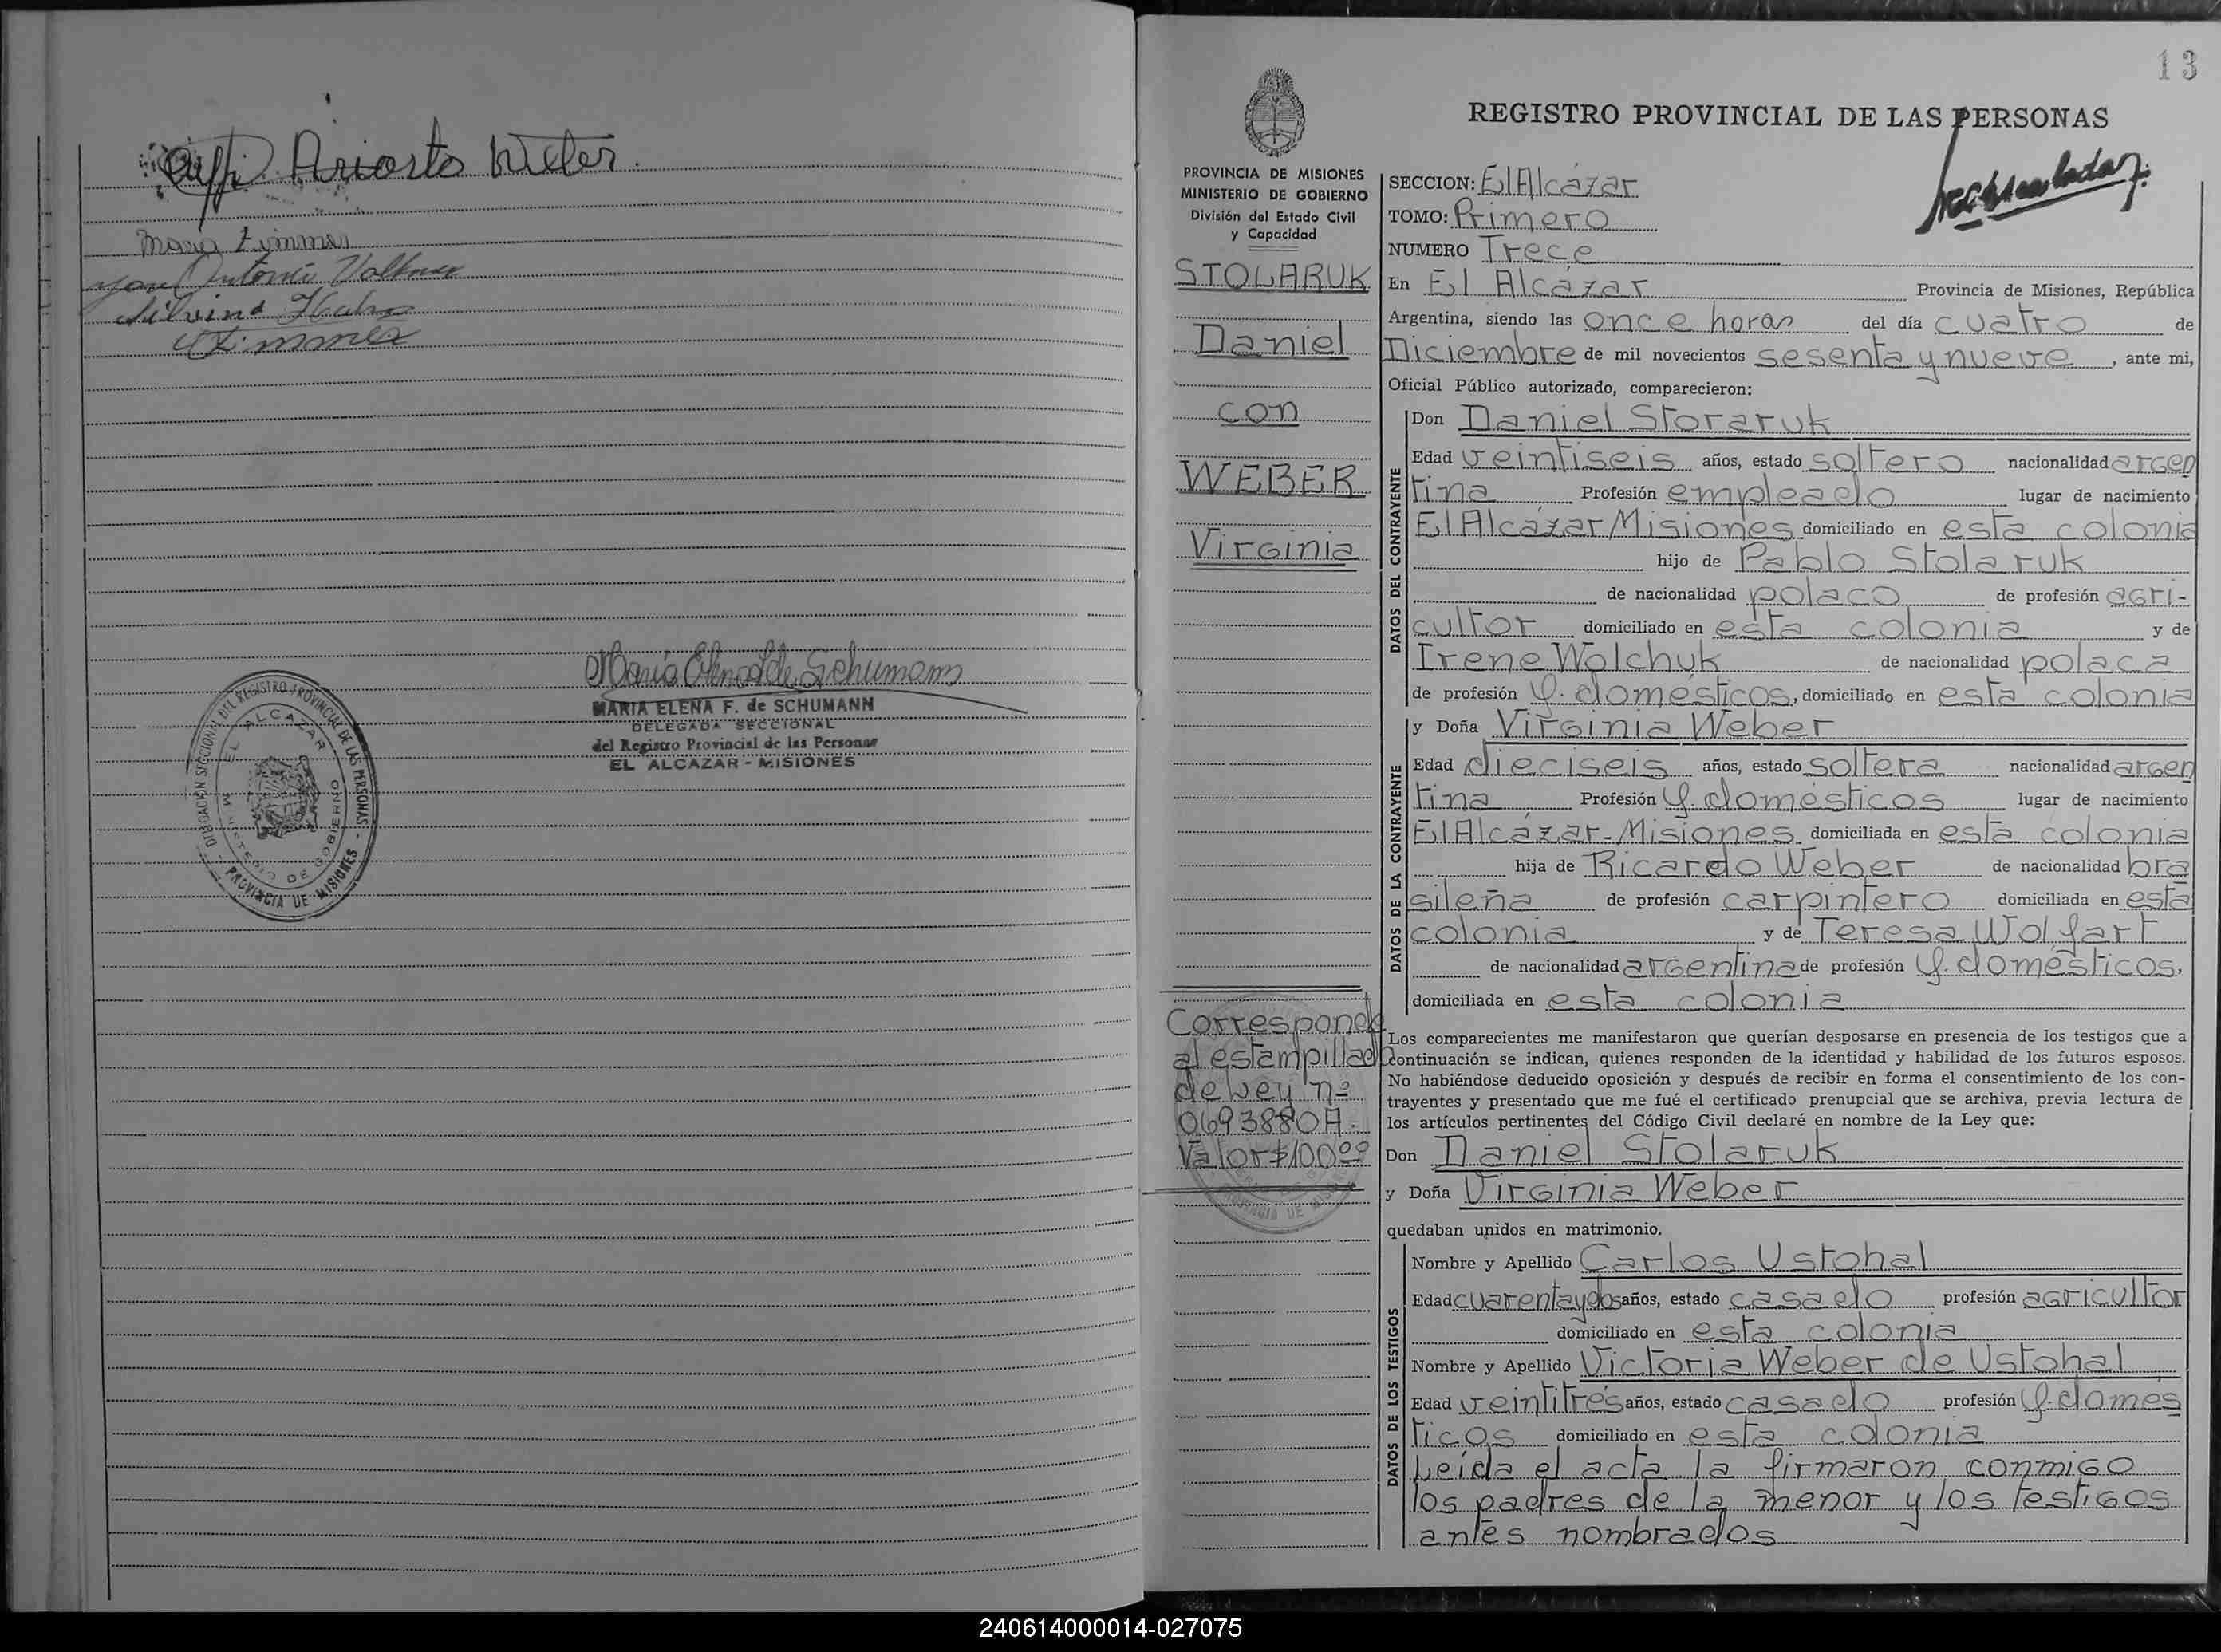 Ariosto
Maria Zimmer
Antonio
Zimmer
Maria Elena F de Schumann
MARIA ELENA F. de SCHUMANN
DELEGADA SECCIONAL
del Registro Provincial de las Personas
EL ALCAZAR - MISIONES
DELEGACION SECCIONAL DEL REGISTRO PROVINCIAL DE LAS PERSONAS -
EL ALCAZAR
MINISTERIO DE GOBIERNO
- PROVINCIA DE MISIONES
13
REGISTRO PROVINCIAL DE LAS PERSONAS
PROVINCIA DE MISIONES
MINISTERIO DE GOBIERNO
División del Estado Civil
y Capacidad
STOLARUK
Daniel
con
WEBER
Virginia
Corresponde
al estampillado
de Ley nº
0693880A.
Valor $100⁰⁰
SECCION: El Alcázar
TOMO: Primero
NUMERO Trece
En El Alcázar Provincia de Misiones, República
Argentina, siendo las once horas del día cuatro de
Diciembre de mil novecientos sesenta y nueve, ante mi,
Oficial Público autorizado, comparecieron:
DATOS DEL CONTRAYENTE
Don Daniel Storaruk
Edad veintiseis años, estado soltero nacionalidad argen
tina Profesión empleado lugar de nacimiento
El Alcázar Misiones domiciliado en esta colonia
hijo de Pablo Stolaruk
de nacionalidad polaco de profesión agri-
cultor domiciliado en esta colonia y de
Irene Wolchuk de nacionalidad polaca
de profesión q. domésticos, domiciliado en esta colonia
DATOS DE LA CONTRAYENTE
y Doña Virginia Weber
Edad dieciseis años, estado soltera nacionalidad argen
tina Profesión q. domésticos lugar de nacimiento
El Alcázar-Misiones domiciliada en esta colonia
hija de Ricardo Weber de nacionalidad bra
sileña de profesión carpintero domiciliada en esta
colonia y de Teresa Wolfart
de nacionalidad argentina de profesión q. domésticos,
domiciliada en esta colonia
Los comparecientes me manifestaron que querían desposarse en presencia de los testigos que a
continuación se indican, quienes responden de la identidad y habilidad de los futuros esposos.
No habiéndose deducido oposición y después de recibir en forma el consentimiento de los con-
trayentes y presentado que me fué el certificado prenupcial que se archiva, previa lectura de
los artículos pertinentes del Código Civil declaré en nombre de la Ley que:
Don Daniel Stolaruk
y Doña Virginia Weber
quedaban unidos en matrimonio.
DATOS DE LOS TESTIGOS
Nombre y Apellido Carlos Ustohal
Edad cuarenta y dos años, estado casado profesión agricultor
domiciliado en esta colonia
Nombre y Apellido Victoria Weber de Ustohal
Edad veintitrés años, estado casado profesión q. domés
ticos domiciliado en esta colonia
Leída el acta la firmaron conmigo
los padres de la menor y los testigos
antes nombrados
240614000014-027075